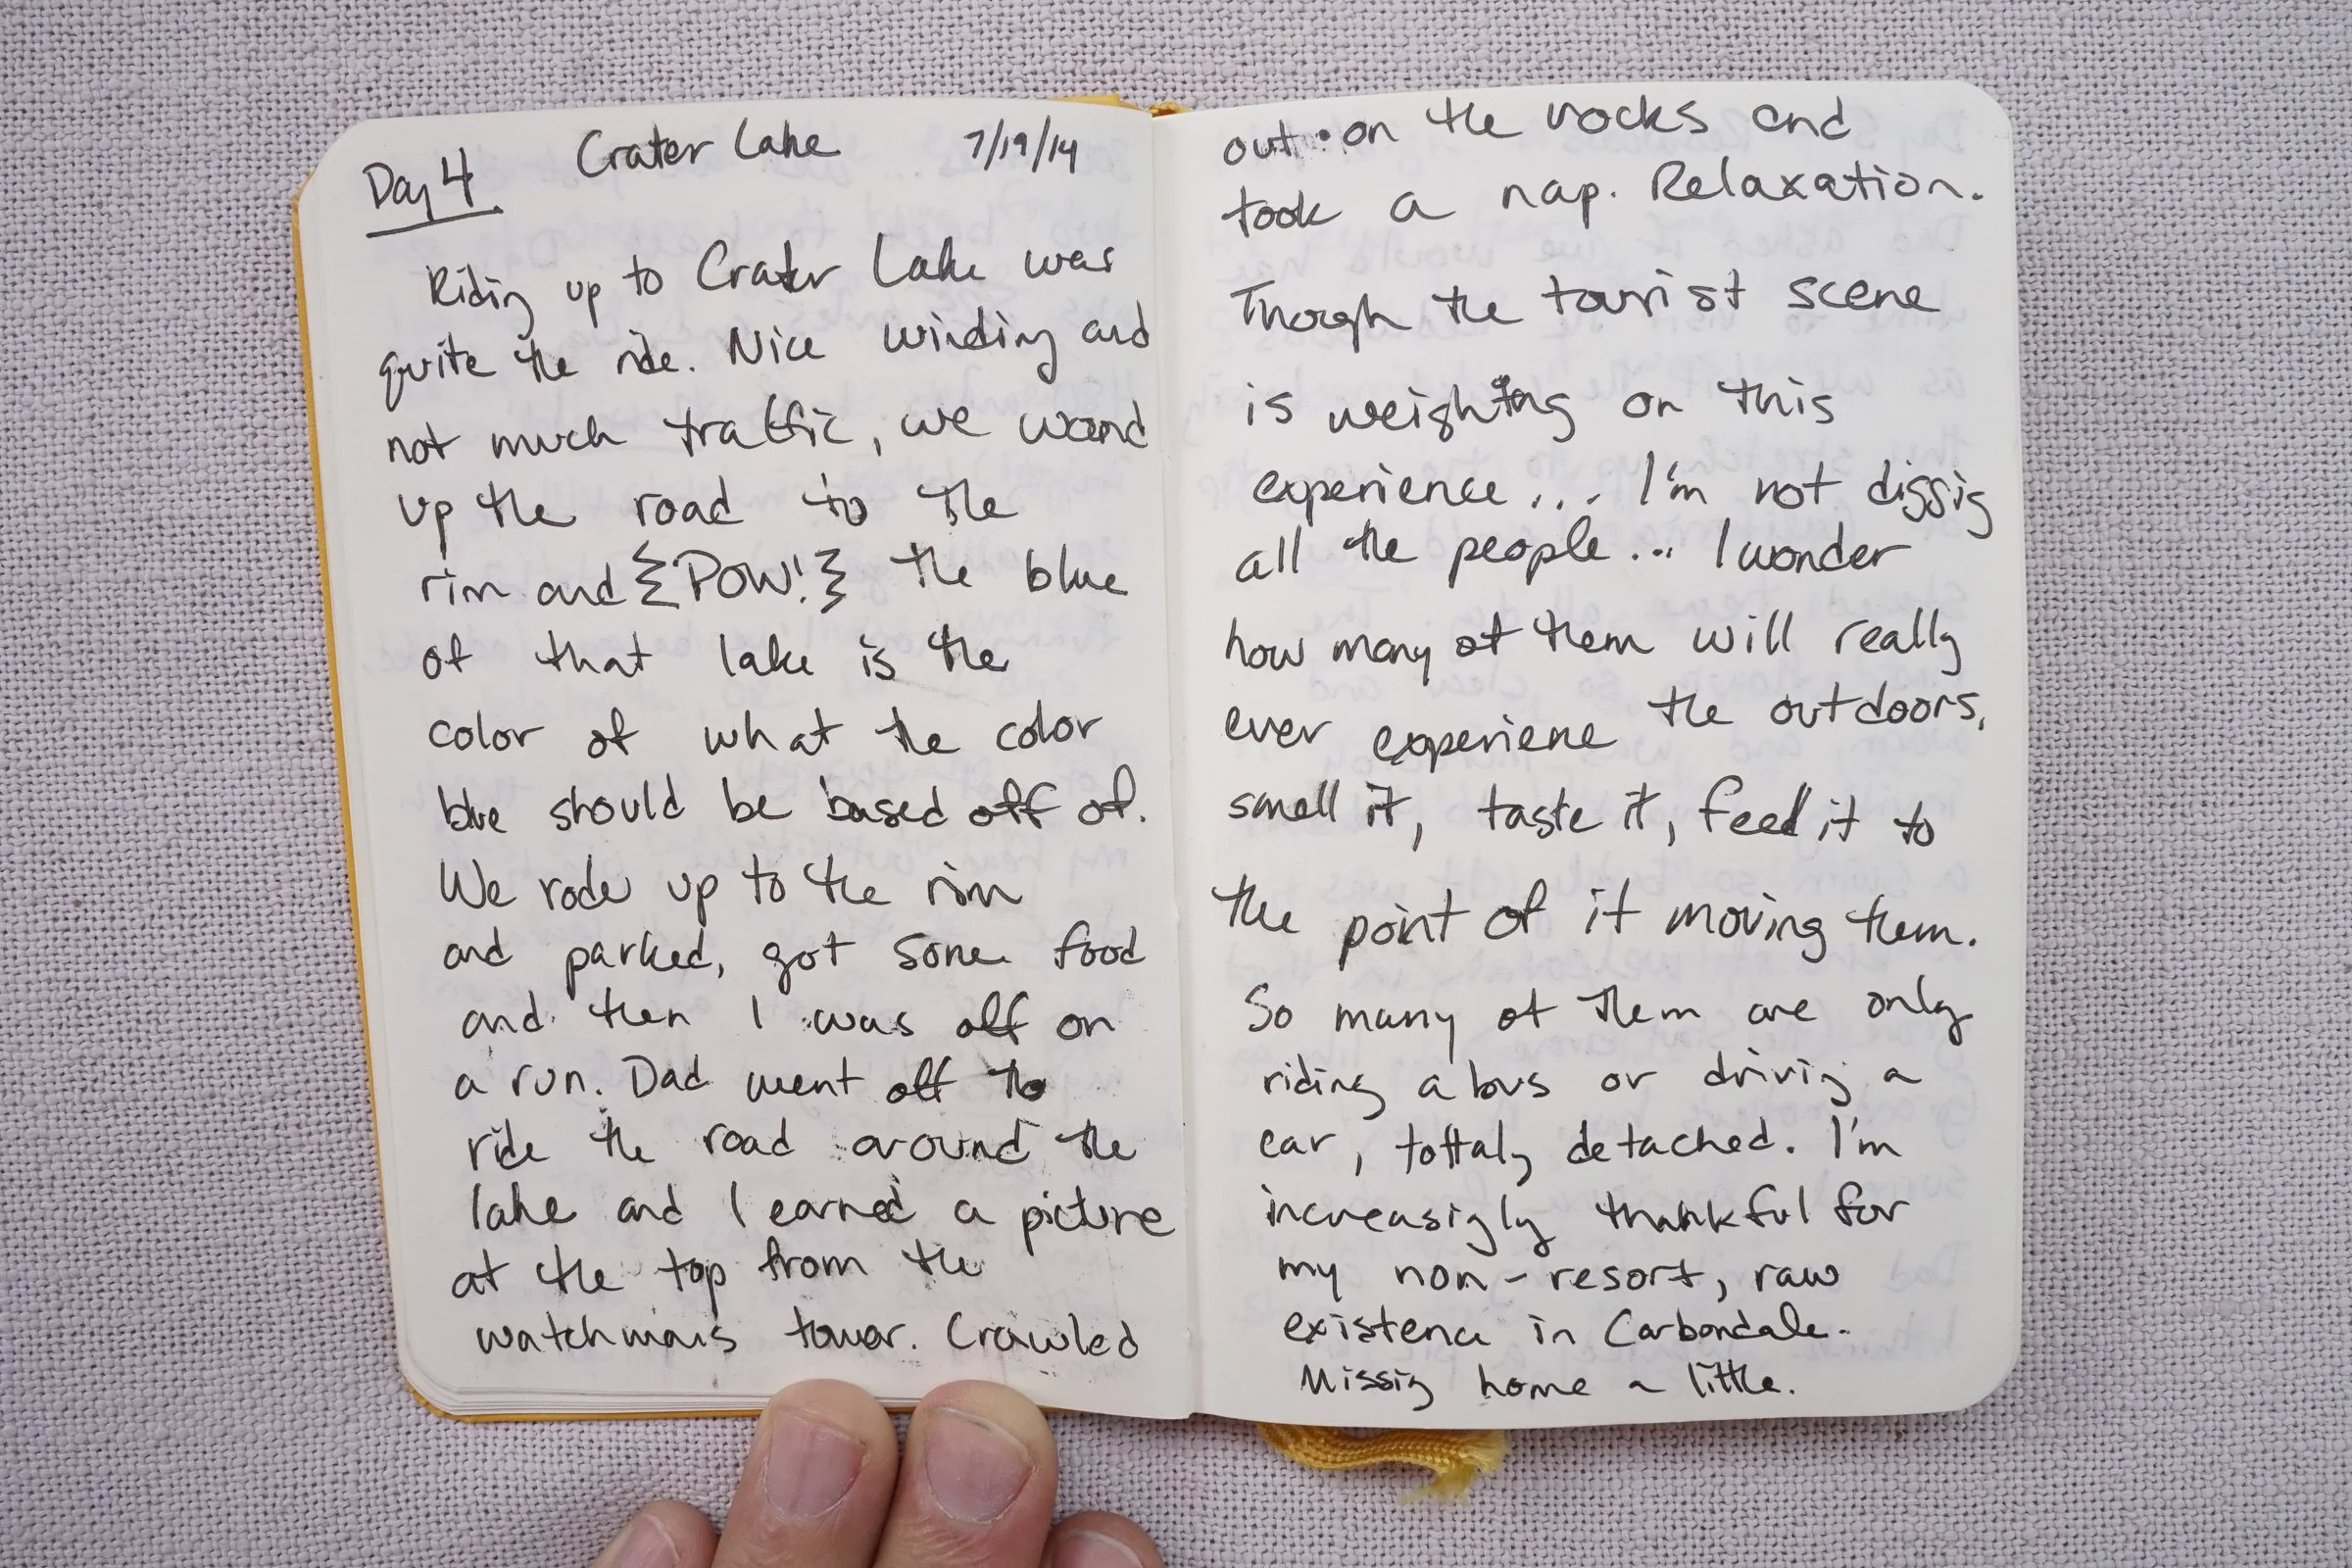 Day 4 Crater Lake 7/19/14
Riding up to Crater Lake was
quite the ride. Nice winding and
not much traffic, we wound
up the road to the
rim and {POW!} the blue
of that lake is the
color of what the color
blue should be based off of.
We rode up to the rim
and parked, got some food
and then I was off on
a run. Dad went off to
ride the road around the
lake and I earned a picture
at the top from the
watchmans tower. Crawled
out on the rocks and
took a nap. Relaxation.
Though the tourist scene
is weighting on this
experience... I'm not digging
all the people... I wonder
how many of them will really
ever experiene the outdoors,
smell it, taste it, feel it to
the point of it moving them.
So many of them are only
riding a bus or driving a
car, tottaly detached. I'm
increasigly thankful for
my non-resort, raw
existence in Carbondale.
Missing home a little.